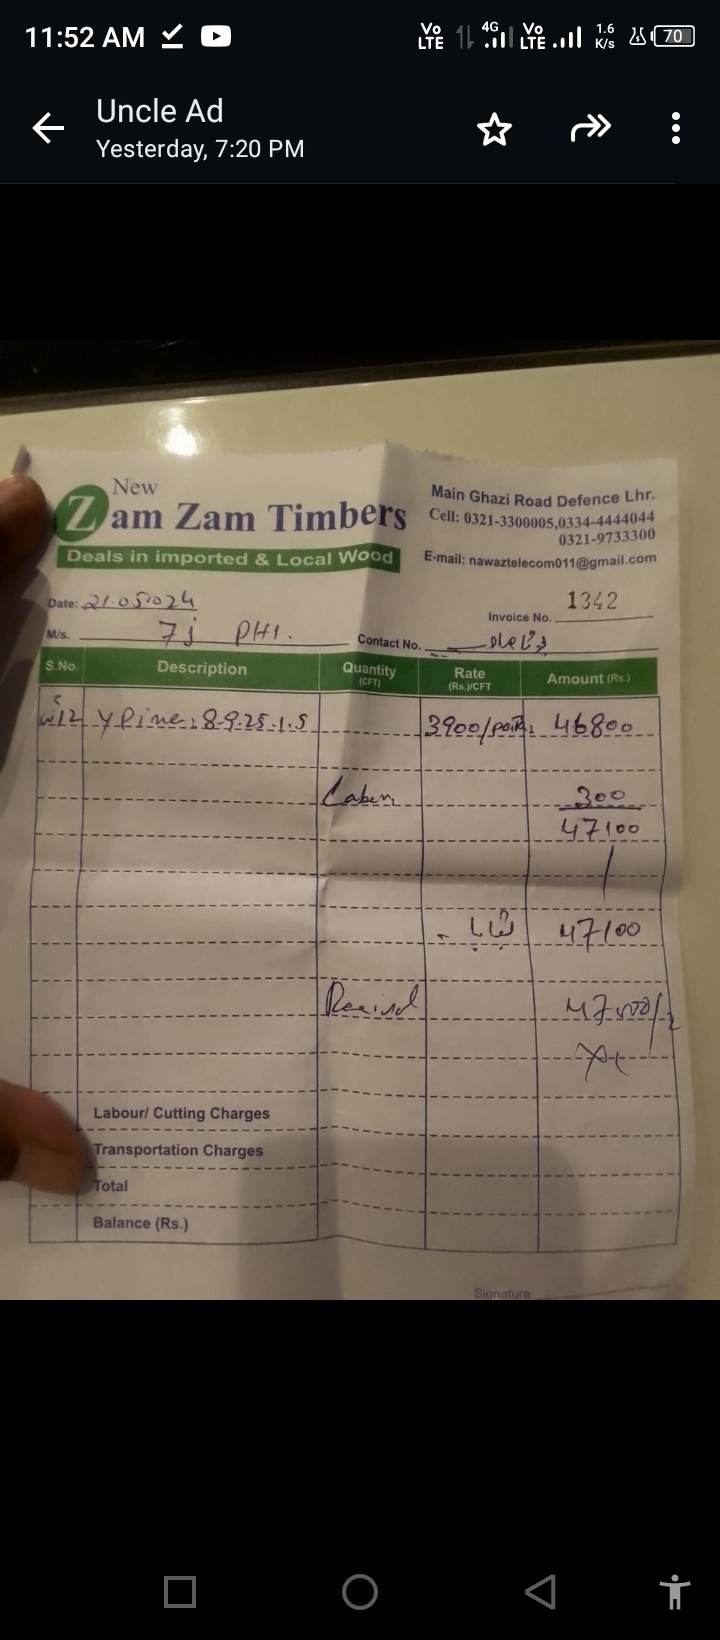 11:52 AM
Vo LTE 4G Vo LTE 1.6 K/s 70
Uncle Ad
Yesterday, 7:20 PM
New
Zam Zam Timbers
Deals in imported & Local Wood
Main Ghazi Road Defence Lhr.
Cell: 0321-3300005,0334-4444044
0321-9733300
E-mail: nawaztelecom011@gmail.com
Date: 21.05.024
Invoice No. 1342
M/s. 7j PH1.
Contact No.
S.No. Description Quantity (CFT) Rate (Rs.)/CFT Amount (Rs.)
12 y Pine: 8-9.25-1.5 3900/ 46800
300
47100
بقایا 47100
Labour/ Cutting Charges
Transportation Charges
Total
Balance (Rs.)
Signature: